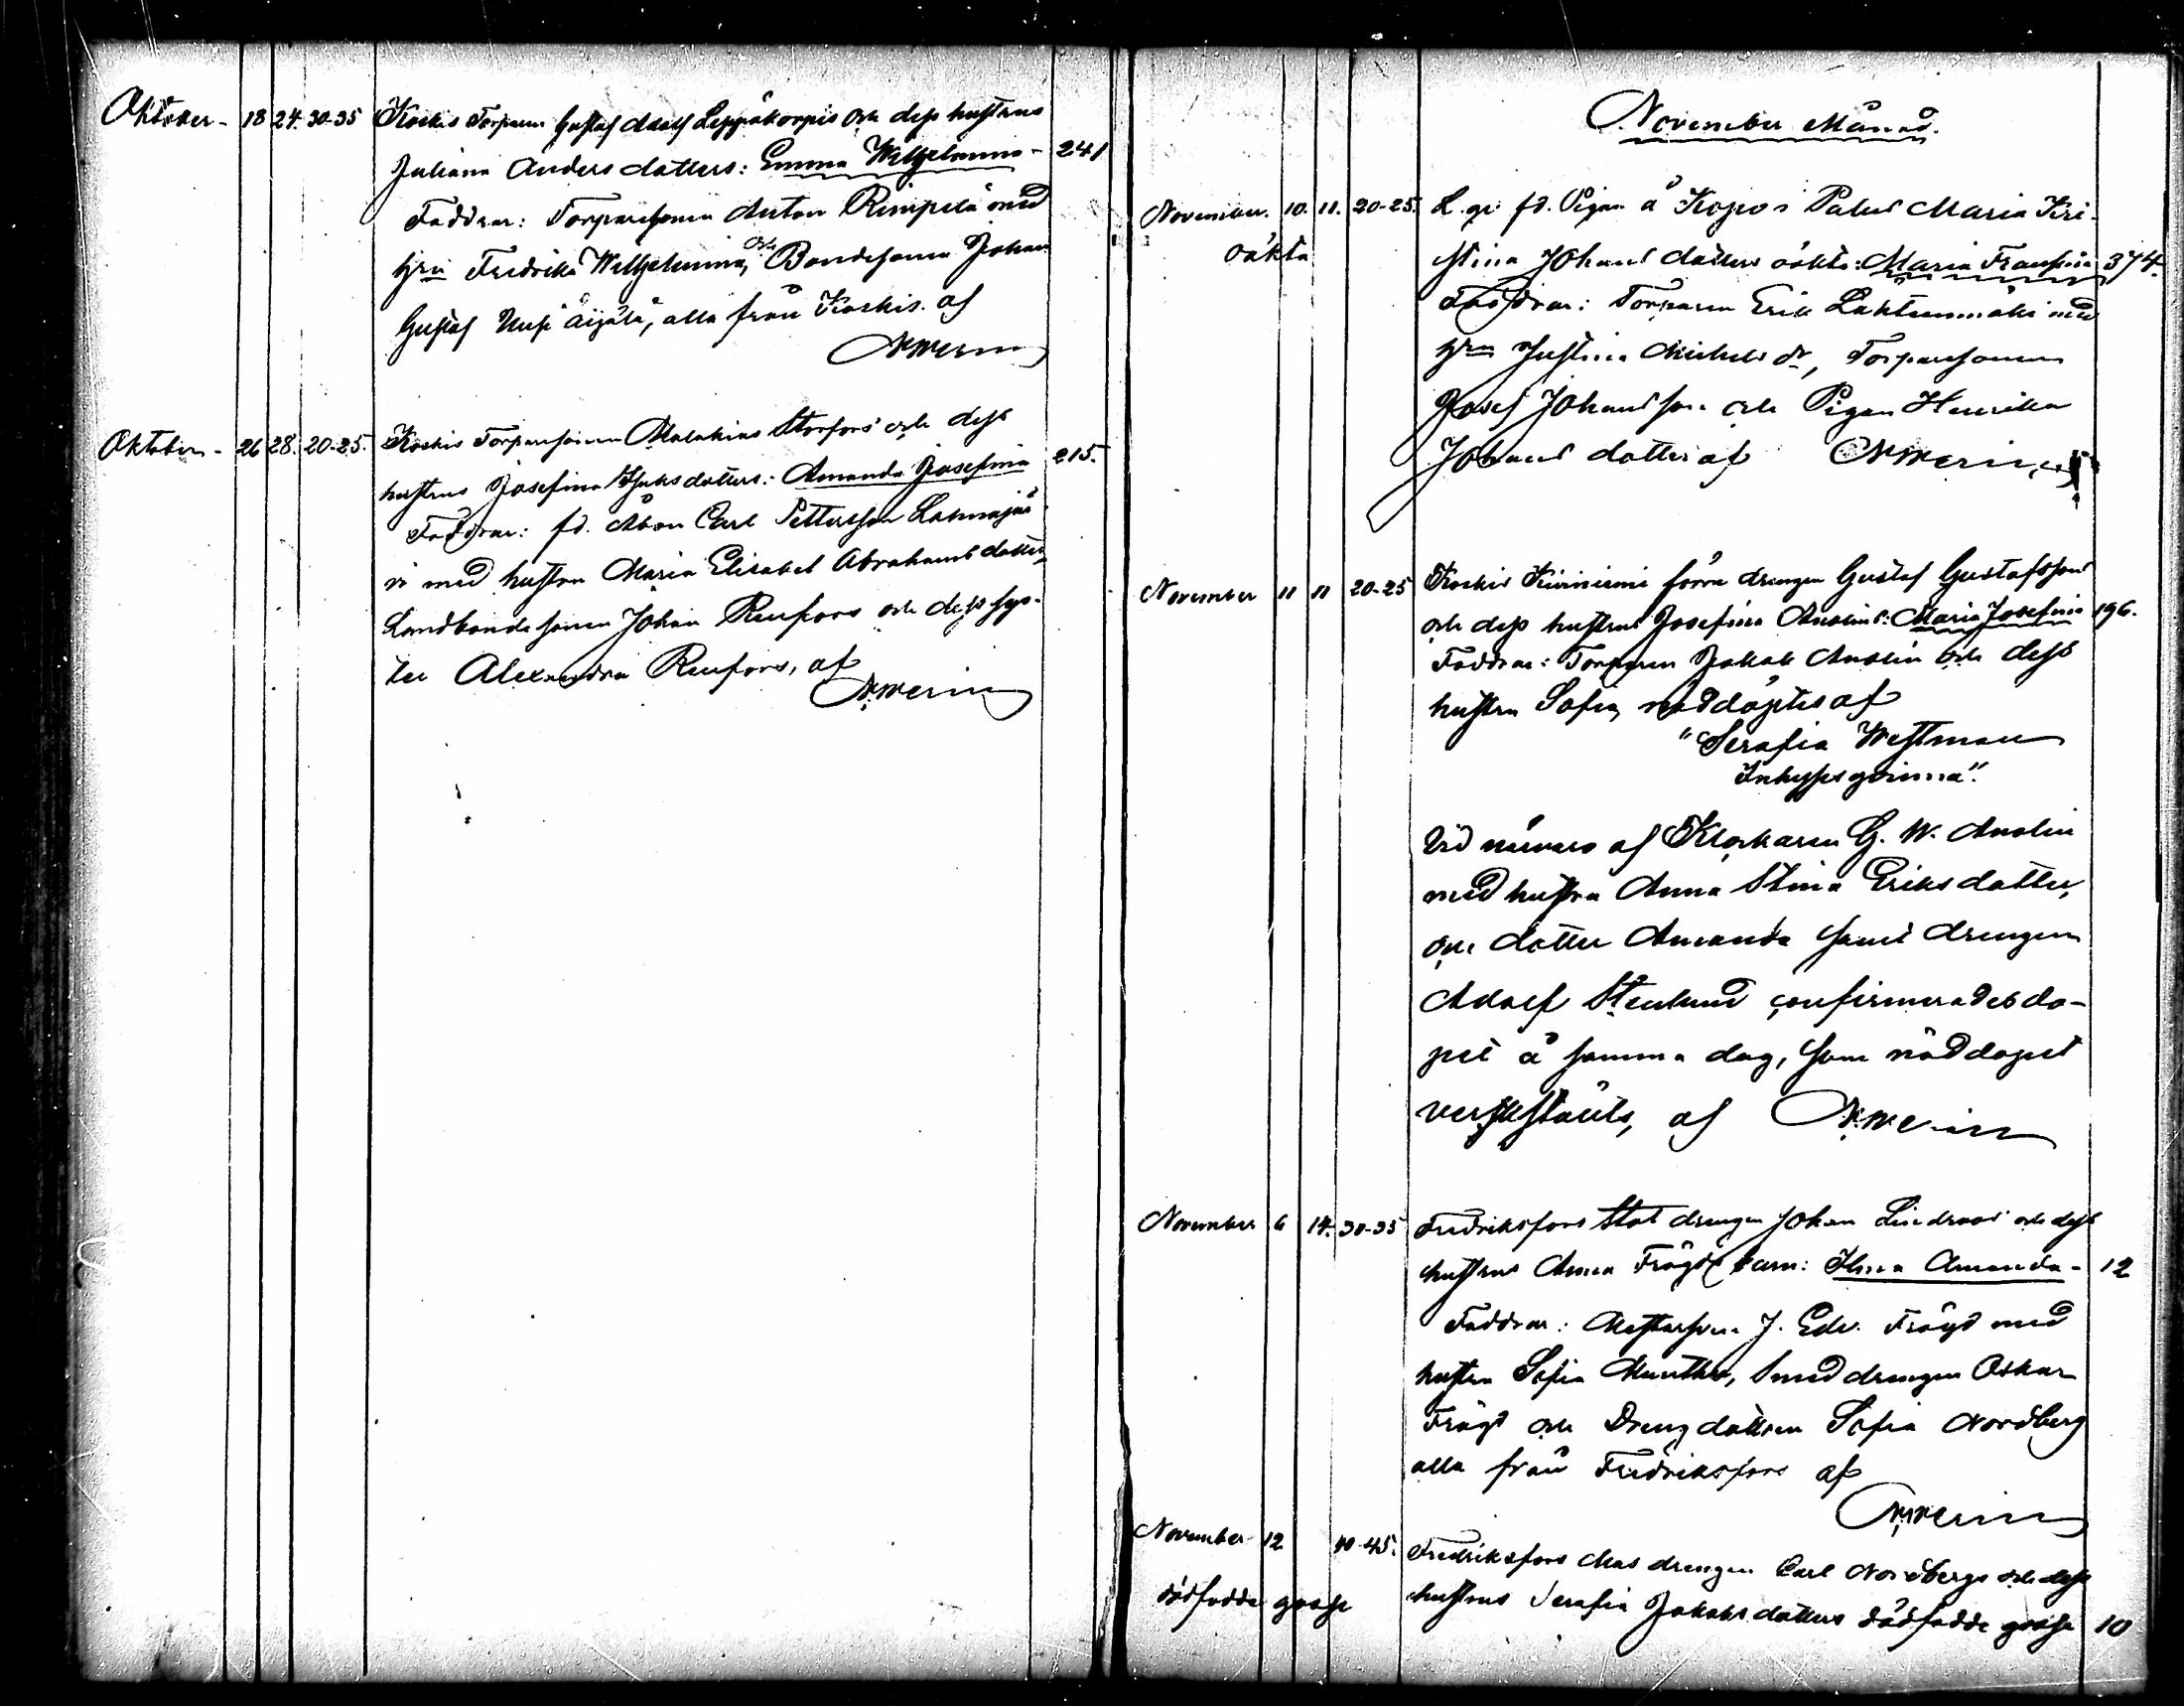 Oktober - 18 24. 30-35 Koskis Torparen Gustaf Adolf Leppäkorpis och dess hustrus
Juliana Anders dotters: Emma Wilhelmina - 241
Faddrar: Torparesonen Anton Rimpelä med
hru Fredrika Wilhelmina, och Bondesonen Johan
Gustaf Äijälä, alla från Koskis. af
Oktober - 26 28. 20-25. Koskis Torparesonen Malakias Storfors och dess
hustrus Josefina Isaksdotters: Amanda Josefina 215.
Faddrar: fd. Åbon Carl Pettersson Lakmajär
vi med hustrun Maria Elisabet Abrahamsdotter,
Landbondesonen Johan Renfors och dess sys-
ter Alexandra Renfors, af
November Månad.
November. 10. 11. 20-25. L. gi fd. Pigan å Kopos Palus Maria Kri-
oäkta stina Johans dotters oäkta: Maria Fransina 374.
Faddrar: Torparen Erik Lahteenmäki med
hru Justina Michels dr, Torparesonen
Josef Johansson och Pigan Henrika
Johans dotter af
November 11 11 20-25 Koskis Kiviniemi förra drengen Gustaf Gustafssons
och dess hustrus Josefina Anolins: Maria Josefina 196.
Faddrar: Torparen Jakob Anolin och dess
hustru Sofia, nöddöptes af
"Serafia Westman
Inhysesqvinna".
Vid närvaro af Klockaren G. W. Anolin
med hustru Anna Stina Eriksdotter,
och dotter Amanda samt drengen
Adolf Stenlund confirmerades do-
pet å samma dag, som nöddopet
verkstälts, af
November 6 14. 30-35 Fredriksfors Stat drengen Johan Lindroos och dess
hustrus Anna Fröjds barn: Ilma Amanda - 12
Faddrar: J. Edv. Fröjd med
hustru Sofia Munther, Smeddrengen Oskar
Fröjd och Drengdottren Sofia Nordberg
alla från Fredriksfors af
November 12 40-45. Fredriksfors Mas drengen Carl Nordbergs och dess
dödfödde gosse hustrus Serafia Jakobsdotters dödfödde gosse 10